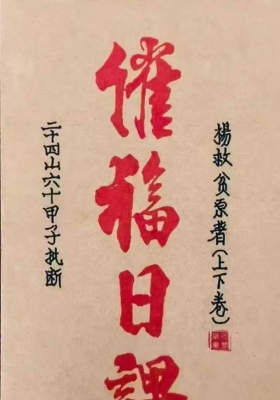 楊救贫原者(上下卷)
催福日課
二十四山六十甲子批断